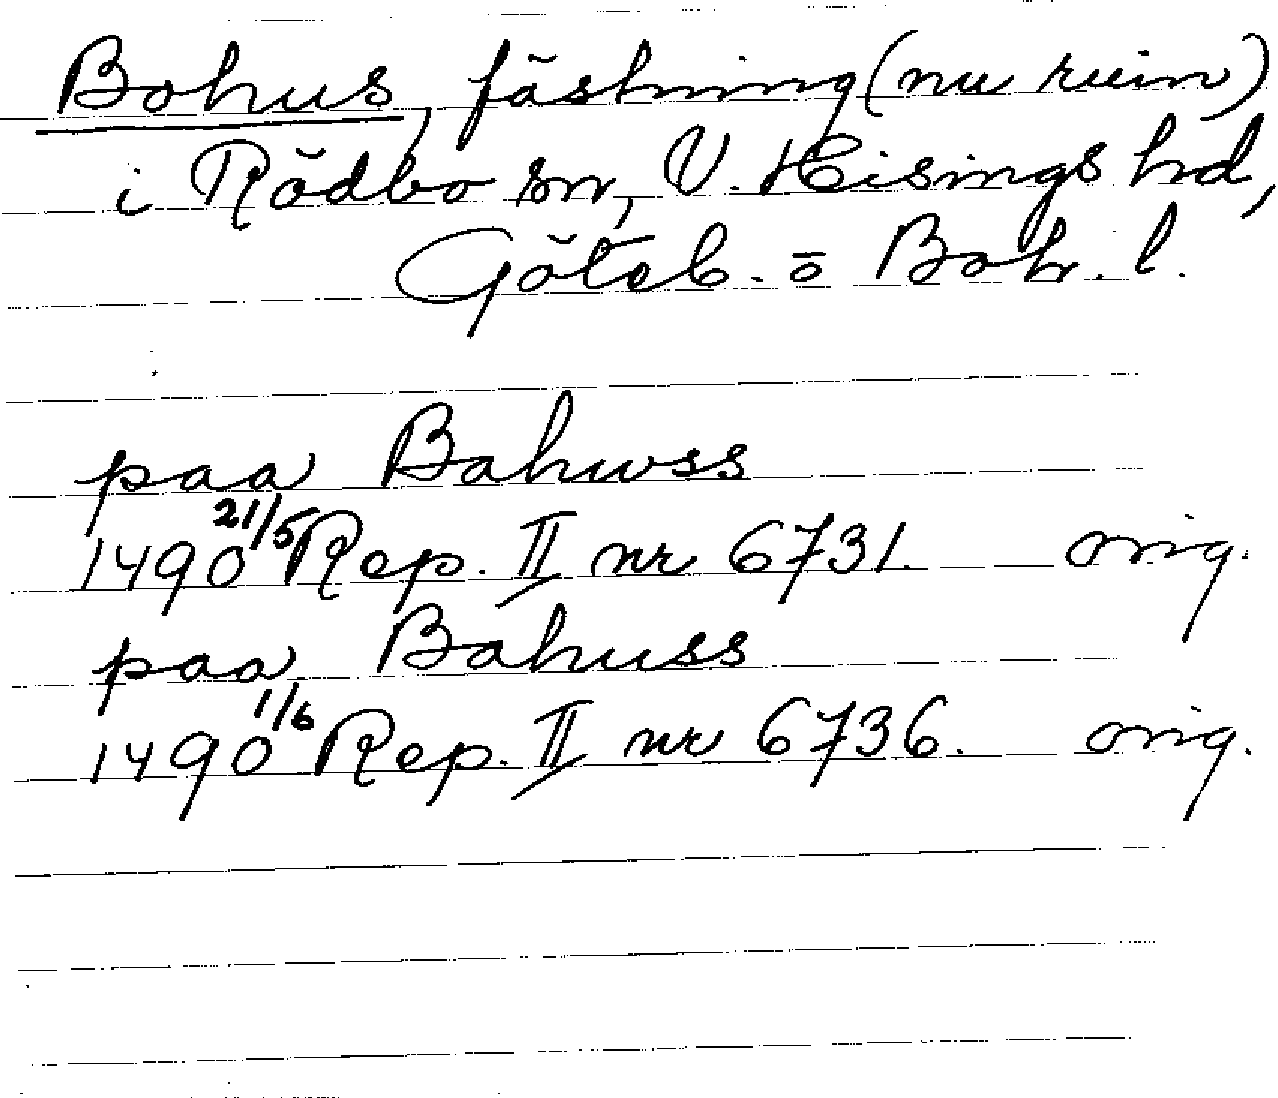 Bohus, fästning (nu ruin)
i Rödbo sn, V. Hisings hd,
Göteb. o Boh. l.
paa Bahwss
1490 21/5 Rep. II nr 6731. orig.
paa Bahuss
1490 1/6 Rep. II nr 6736. orig.